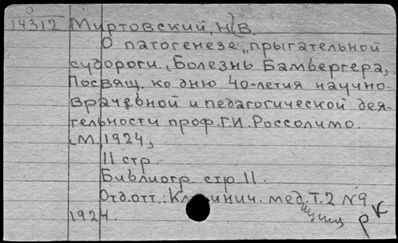 0
14312 Миртовский, Н. В.
О патогенезе "прыгательной
судороги". Болезнь Бамбергера,
Посвящ. ко дню 40-летия научно-
врачебной и педагогической дея-
тельности проф. Г.И. Россолимо.
М., 1924,
11 стр.
Библиогр. стр. 11.
Отд. отт.: Клинич. медицина Т. 2 № 9
1924.
рк